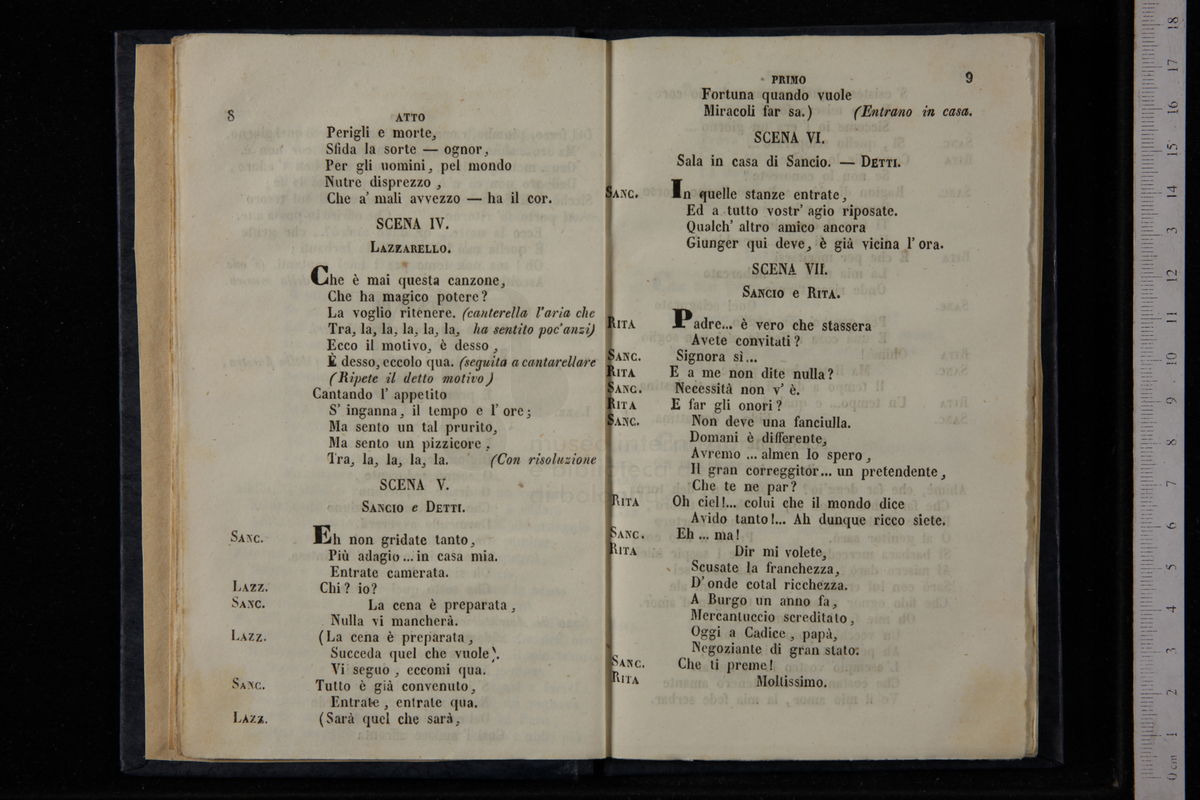 8
ATTO
Perigli e morte,
Sfida la sorte — ognor,
Per gli uomini, pel mondo
Nutre disprezzo,
Che a' mali avvezzo — ha il cor.
SCENA IV.
LAZZARELLO.
Che è mai questa canzone,
Che ha magico potere?
La voglio ritenere. (canterella l'aria che
Tra, la, la, la, la, la, ha sentito poc'anzi)
Ecco il motivo, è desso,
È desso, eccolo qua. (seguita a cantarellare
(Ripete il detto motivo)
Cantando l' appetito
S' inganna, il tempo e l' ore;
Ma sento un tal prurito,
Ma sento un pizzicore.
Tra, la, la, la, la. (Con risoluzione
SCENA V.
SANCIO e DETTI.
SANC. Eh non gridate tanto,
Più adagio... in casa mia.
Entrate camerata.
LAZZ. Chi? io?
SANC. La cena è preparata,
Nulla vi mancherà.
LAZZ. (La cena è preparata,
Succeda quel che vuole).
Vi seguo, eccomi qua.
SANC. Tutto è già convenuto,
Entrate, entrate qua.
LAZZ. (Sarà quel che sarà,
PRIMO 9
Fortuna quando vuole
Miracoli far sa.) (Entrano in casa.
SCENA VI.
Sala in casa di Sancio. — DETTI.
SANC. In quelle stanze entrate,
Ed a tutto vostr' agio riposate.
Qualch' altro amico ancora
Giunger qui deve, è già vicina l' ora.
SCENA VII.
SANCIO e RITA.
RITA Padre... è vero che stassera
Avete convitati?
SANC. Signora sì...
RITA E a me non dite nulla?
SANC. Necessità non v' è.
RITA E far gli onori?
SANC. Non deve una fanciulla.
Domani è differente,
Avremo ... almen lo spero,
Il gran correggitor... un pretendente,
Che te ne par?
RITA Oh ciel!... colui che il mondo dice
Avido tanto!... Ah dunque ricco siete.
SANC. Eh ... ma!
RITA Dir mi volete,
Scusate la franchezza,
D' onde cotal ricchezza.
A Burgo un anno fa,
Mercantuccio screditato,
Oggi a Cadice, papà,
Negoziante di gran stato.
SANC. Che ti preme!
RITA Moltissimo.